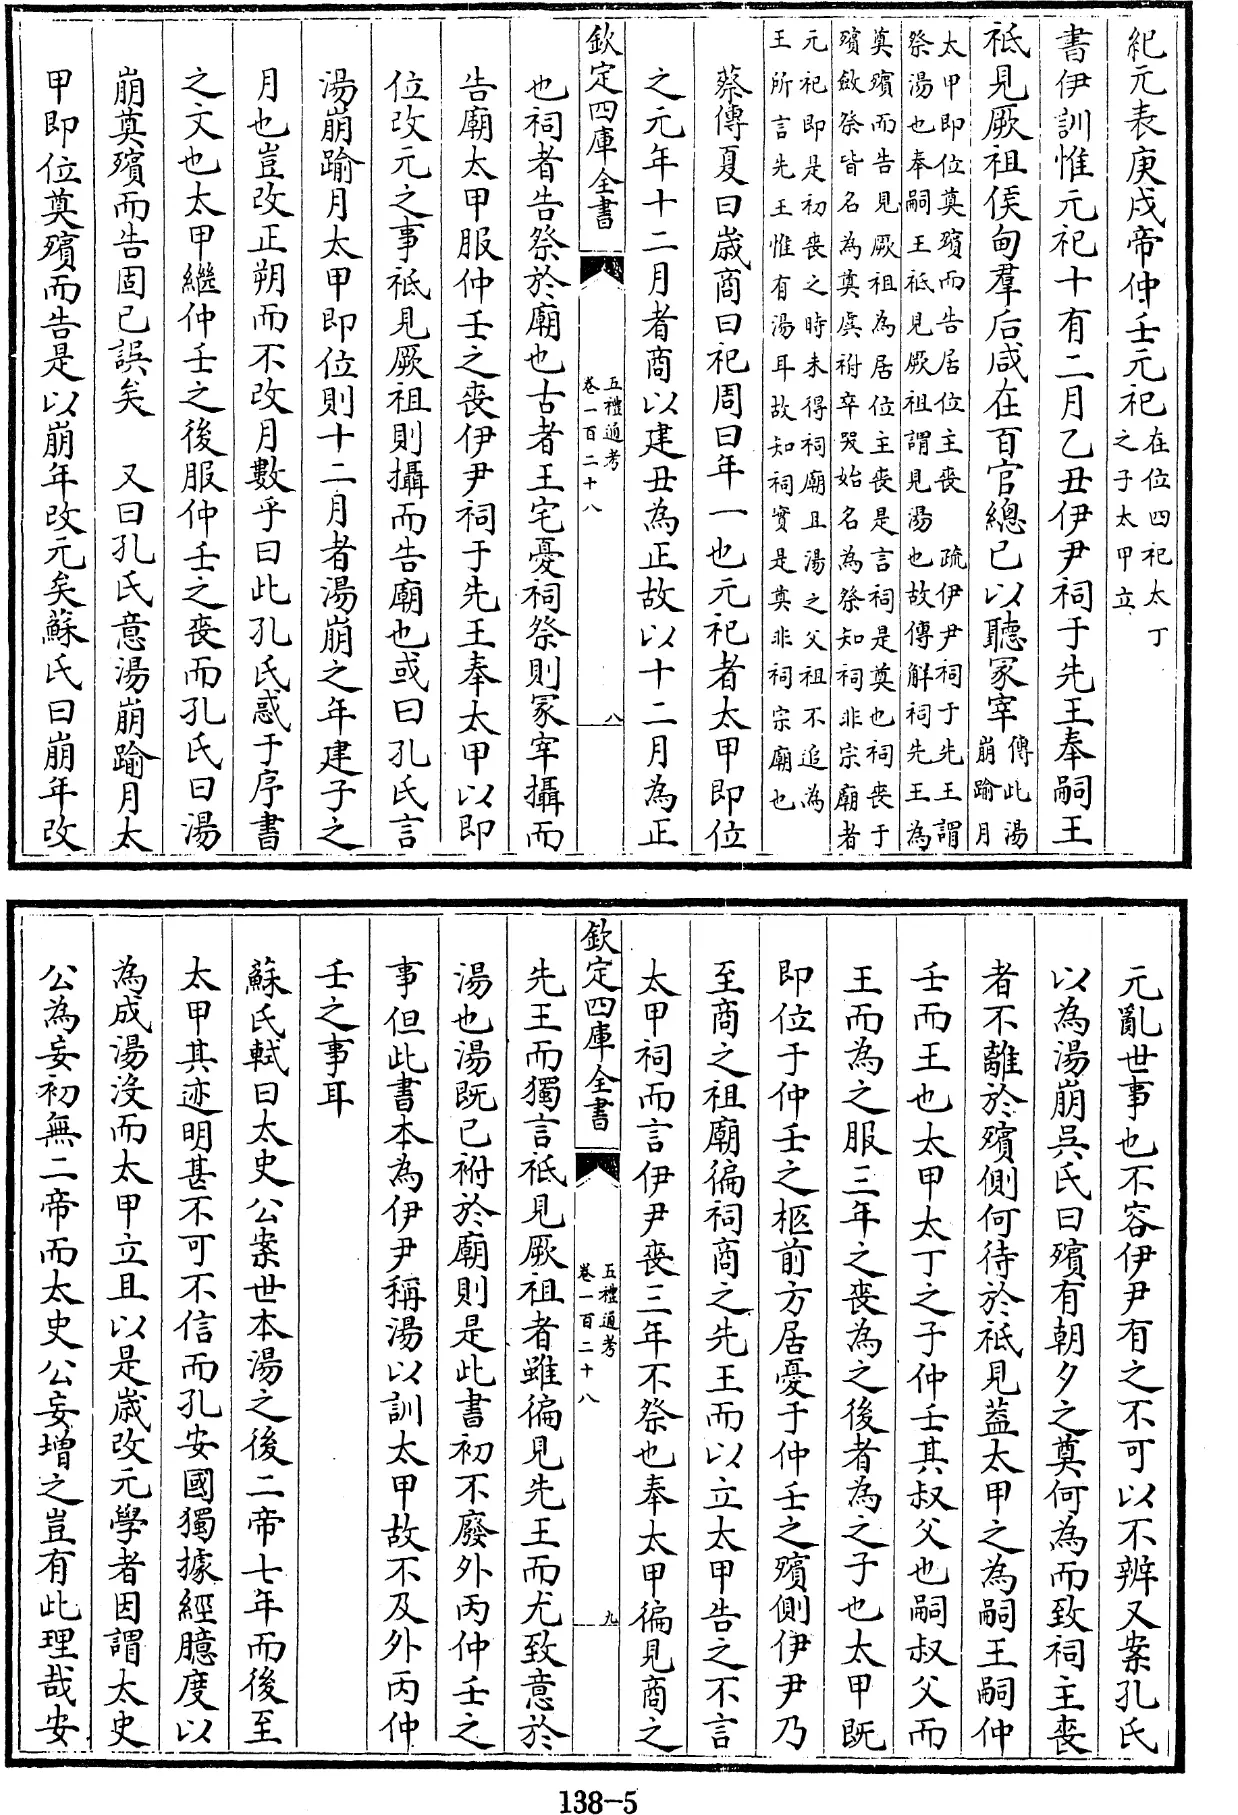 紀元表庚戌帝仲壬元祀在位四祀太丁
之子太甲立
書伊訓惟元祀十有二月乙丑伊尹祠于先王奉嗣王
祗見厥祖侯甸羣后咸在百官總已以聽冢宰傳此湯
崩踰月
太甲即位奠殯而告居位主喪　疏伊尹祠于先王謂
祭湯也奉嗣王祗見厥祖謂見湯也故傳解祠先王為
奠殯而告見厥祖為居位主喪是言祠是奠也祠喪于
殯斂祭皆名為奠虞祔卒哭始名為祭知祠非宗廟者
元祀即是初喪之時未得祠廟且湯之父祖不追為
王所言先王惟有湯耳故知祠實是奠非祠宗廟也
蔡傳夏曰歲商曰祀周曰年一也元祀者太甲即位
之元年十二月者商以建丑為正故以十二月為正
欽定四庫全書
五禮通考
卷一百二十八
八
也祠者告祭於廟也古者王宅憂祠祭則冢宰攝而
告廟太甲服仲壬之喪伊尹祠于先王奉太甲以即
位改元之事祗見厥祖則攝而告廟也或曰孔氏言
湯崩踰月太甲即位則十二月者湯崩之年建子之
月也豈改正朔而不改月數乎曰此孔氏惑于序書
之文也太甲繼仲壬之後服仲壬之喪而孔氏曰湯
崩奠殯而告固已誤矣　又曰孔氏意湯崩踰月太
甲即位奠殯而告是以崩年改元矣蘇氏曰崩年改
元亂世事也不容伊尹有之不可以不辨又案孔氏
以為湯崩吳氏曰殯有朝夕之奠何為而致祠主喪
者不離於殯側何待於祗見蓋太甲之為嗣王嗣仲
壬而王也太甲太丁之子仲壬其叔父也嗣叔父而
王而為之服三年之喪為之後者為之子也太甲既
即位于仲壬之柩前方居憂于仲壬之殯側伊尹乃
至商之祖廟徧祠商之先王而以立太甲告之不言
太甲祠而言伊尹喪三年不祭也奉太甲徧見商之
欽定四庫全書
五禮通考
卷一百二十八
九
先王而獨言祗見厥祖者雖徧見先王而尤致意於
湯也湯既已祔於廟則是此書初不廢外丙仲壬之
事但此書本為伊尹稱湯以訓太甲故不及外丙仲
壬之事耳
蘇氏軾曰太史公案世本湯之後二帝七年而後至
太甲其迹明甚不可不信而孔安國獨據經臆度以
為成湯沒而太甲立且以是歲改元學者因謂太史
公為妄初無二帝而太史公妄增之豈有此理哉安
138-5